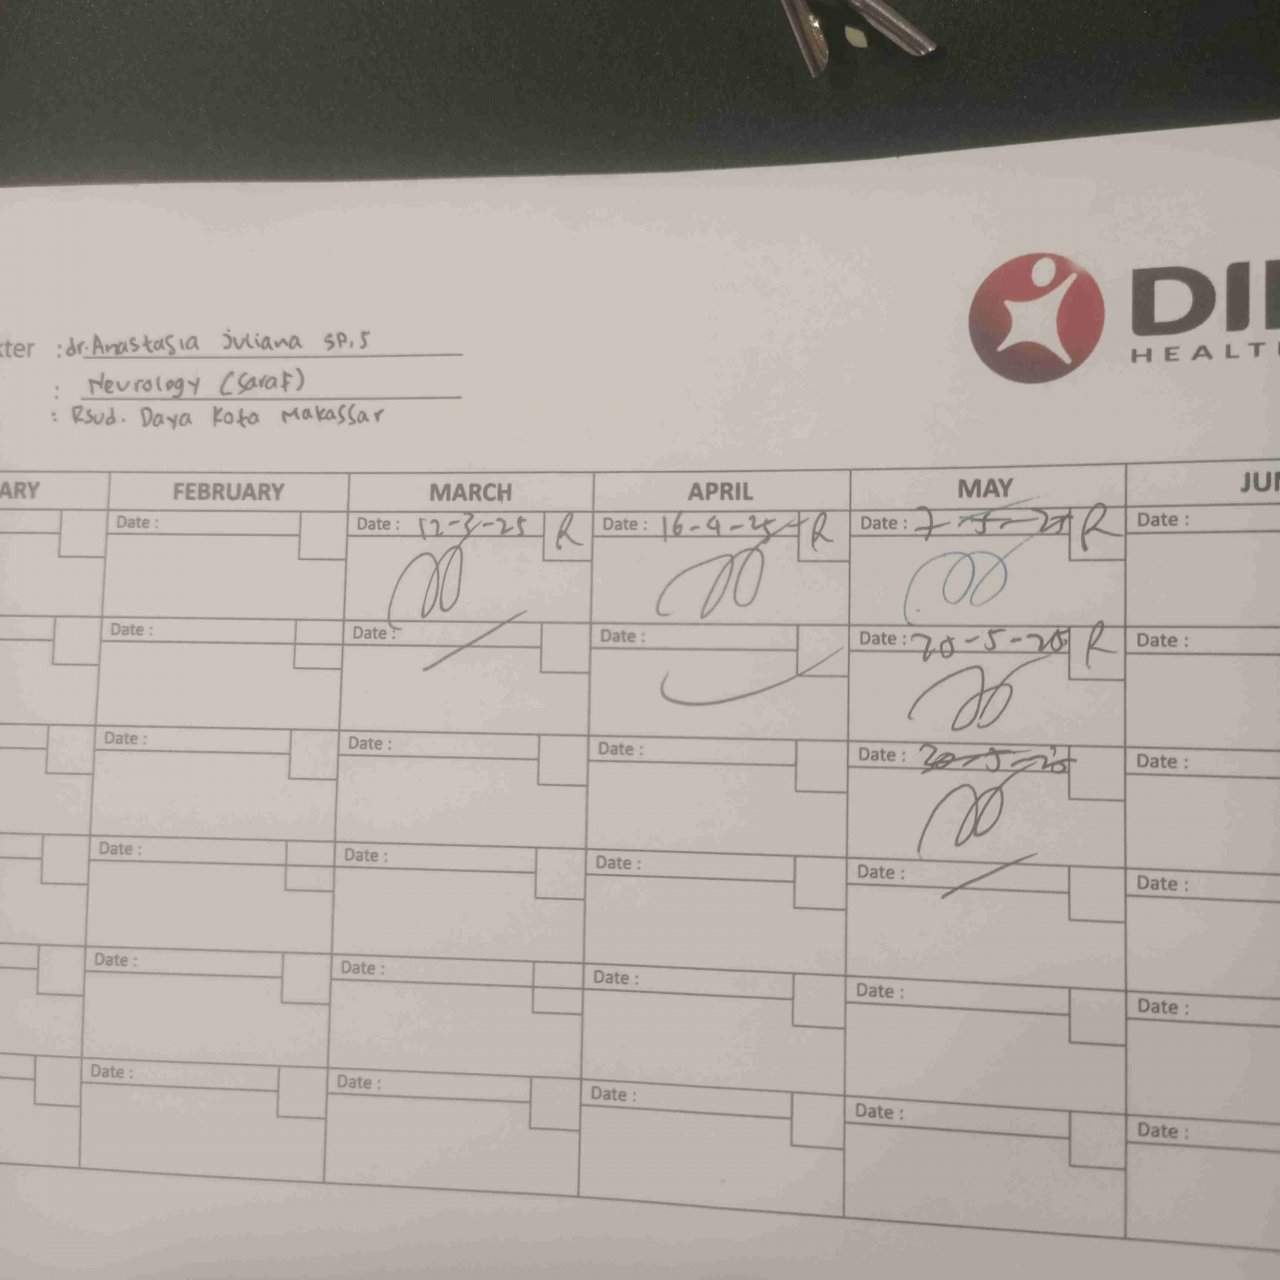 DI
HEALT
kter : dr. Anastasia Juliana SP.S
: Neurology (Saraf)
: Rsud. Daya Kota Makassar
ARY FEBRUARY MARCH APRIL MAY JUN
Date : Date : 12-3-25 R Date : 16-4-25 R Date : 7-5-25 R Date :
Date : Date : Date : Date : 20-5-25 R Date :
Date : Date : Date : Date : 30-5-25 Date :
Date : Date : Date : Date : Date :
Date : Date : Date : Date : Date :
Date : Date : Date : Date : Date :